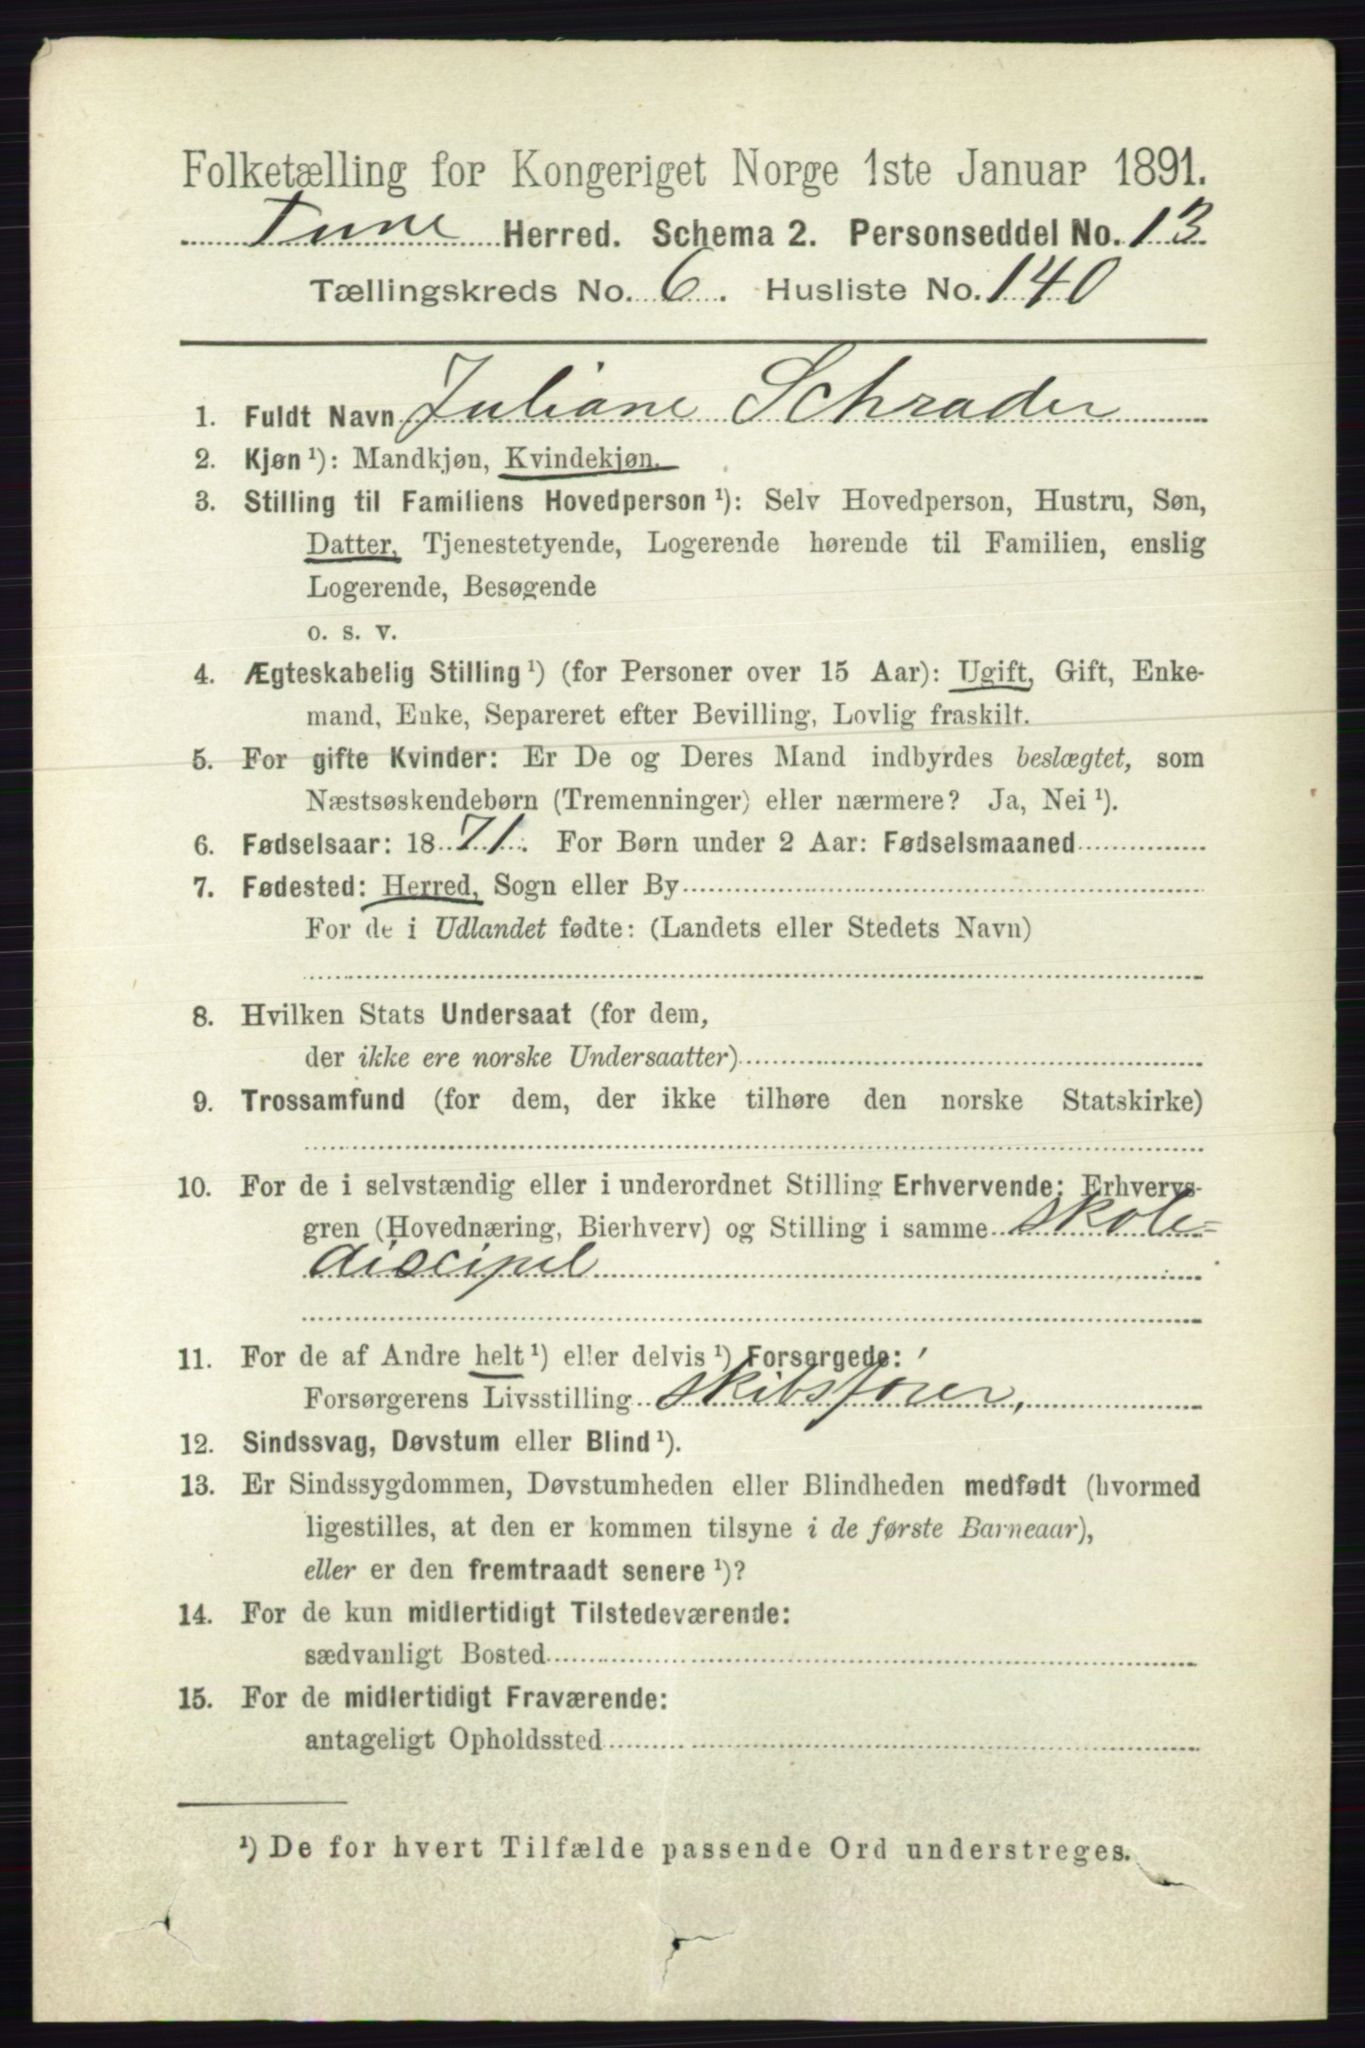 Folketælling for Kongeriget Norge 1ste Januar 1891.
Tune Herred. Schema 2. Personseddel No. 13
Tællingskreds No. 6. Husliste No. 140
1. Fuldt Navn Juliane Schrader
2. Kjøn ¹): Mandkjøn, Kvindekjøn.
3. Stilling til Familiens Hovedperson ¹): Selv Hovedperson, Hustru, Søn,
Datter, Tjenestetyende, Logerende hørende til Familien, enslig
Logerende, Besøgende
o. s. v.
4. Ægteskabelig Stilling ¹) (for Personer over 15 Aar): Ugift, Gift, Enke-
mand, Enke, Separeret efter Bevilling, Lovlig fraskilt.
5. For gifte Kvinder: Er De og Deres Mand indbyrdes beslægtet, som
Næstsøskendebørn (Tremenninger) eller nærmere? Ja, Nei ¹).
6. Fødselsaar: 1871. For Børn under 2 Aar: Fødselsmaaned
7. Fødested: Herred, Sogn eller By
For de i Udlandet fødte: (Landets eller Stedets Navn)
8. Hvilken Stats Undersaat (for dem,
der ikke ere norske Undersaatter)
9. Trossamfund (for dem, der ikke tilhøre den norske Statskirke)
10. For de i selvstændig eller i underordnet Stilling Erhvervende: Erhvervs-
gren (Hovednæring, Bierhverv) og Stilling i samme skole=
discipel
11. For de af Andre helt ¹) eller delvis ¹) Forsørgede:
Forsørgerens Livsstilling skibsfører,
12. Sindssvag, Døvstum eller Blind ¹).
13. Er Sindssygdommen, Døvstumheden eller Blindheden medfødt (hvormed
ligestilles, at den er kommen tilsyne i de første Barneaar),
eller er den fremtraadt senere ¹)?
14. For de kun midlertidigt Tilstedeværende:
sædvanligt Bosted
15. For de midlertidigt Fraværende:
antageligt Opholdssted
¹) De for hvert Tilfælde passende Ord understreges.